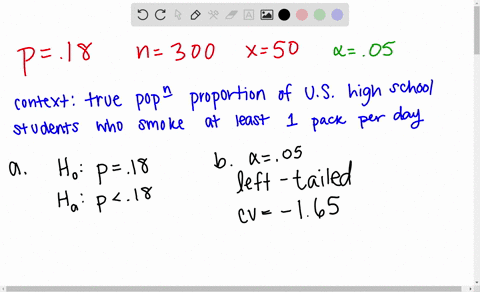 p=.18 n=300 x=50 α=.05
context: true popⁿ proportion of U.S. high school
students who smoke at least 1 pack per day
a. H₀: p=.18
Hₐ: p<.18
b. α=.05
left-tailed
cv=-1.65